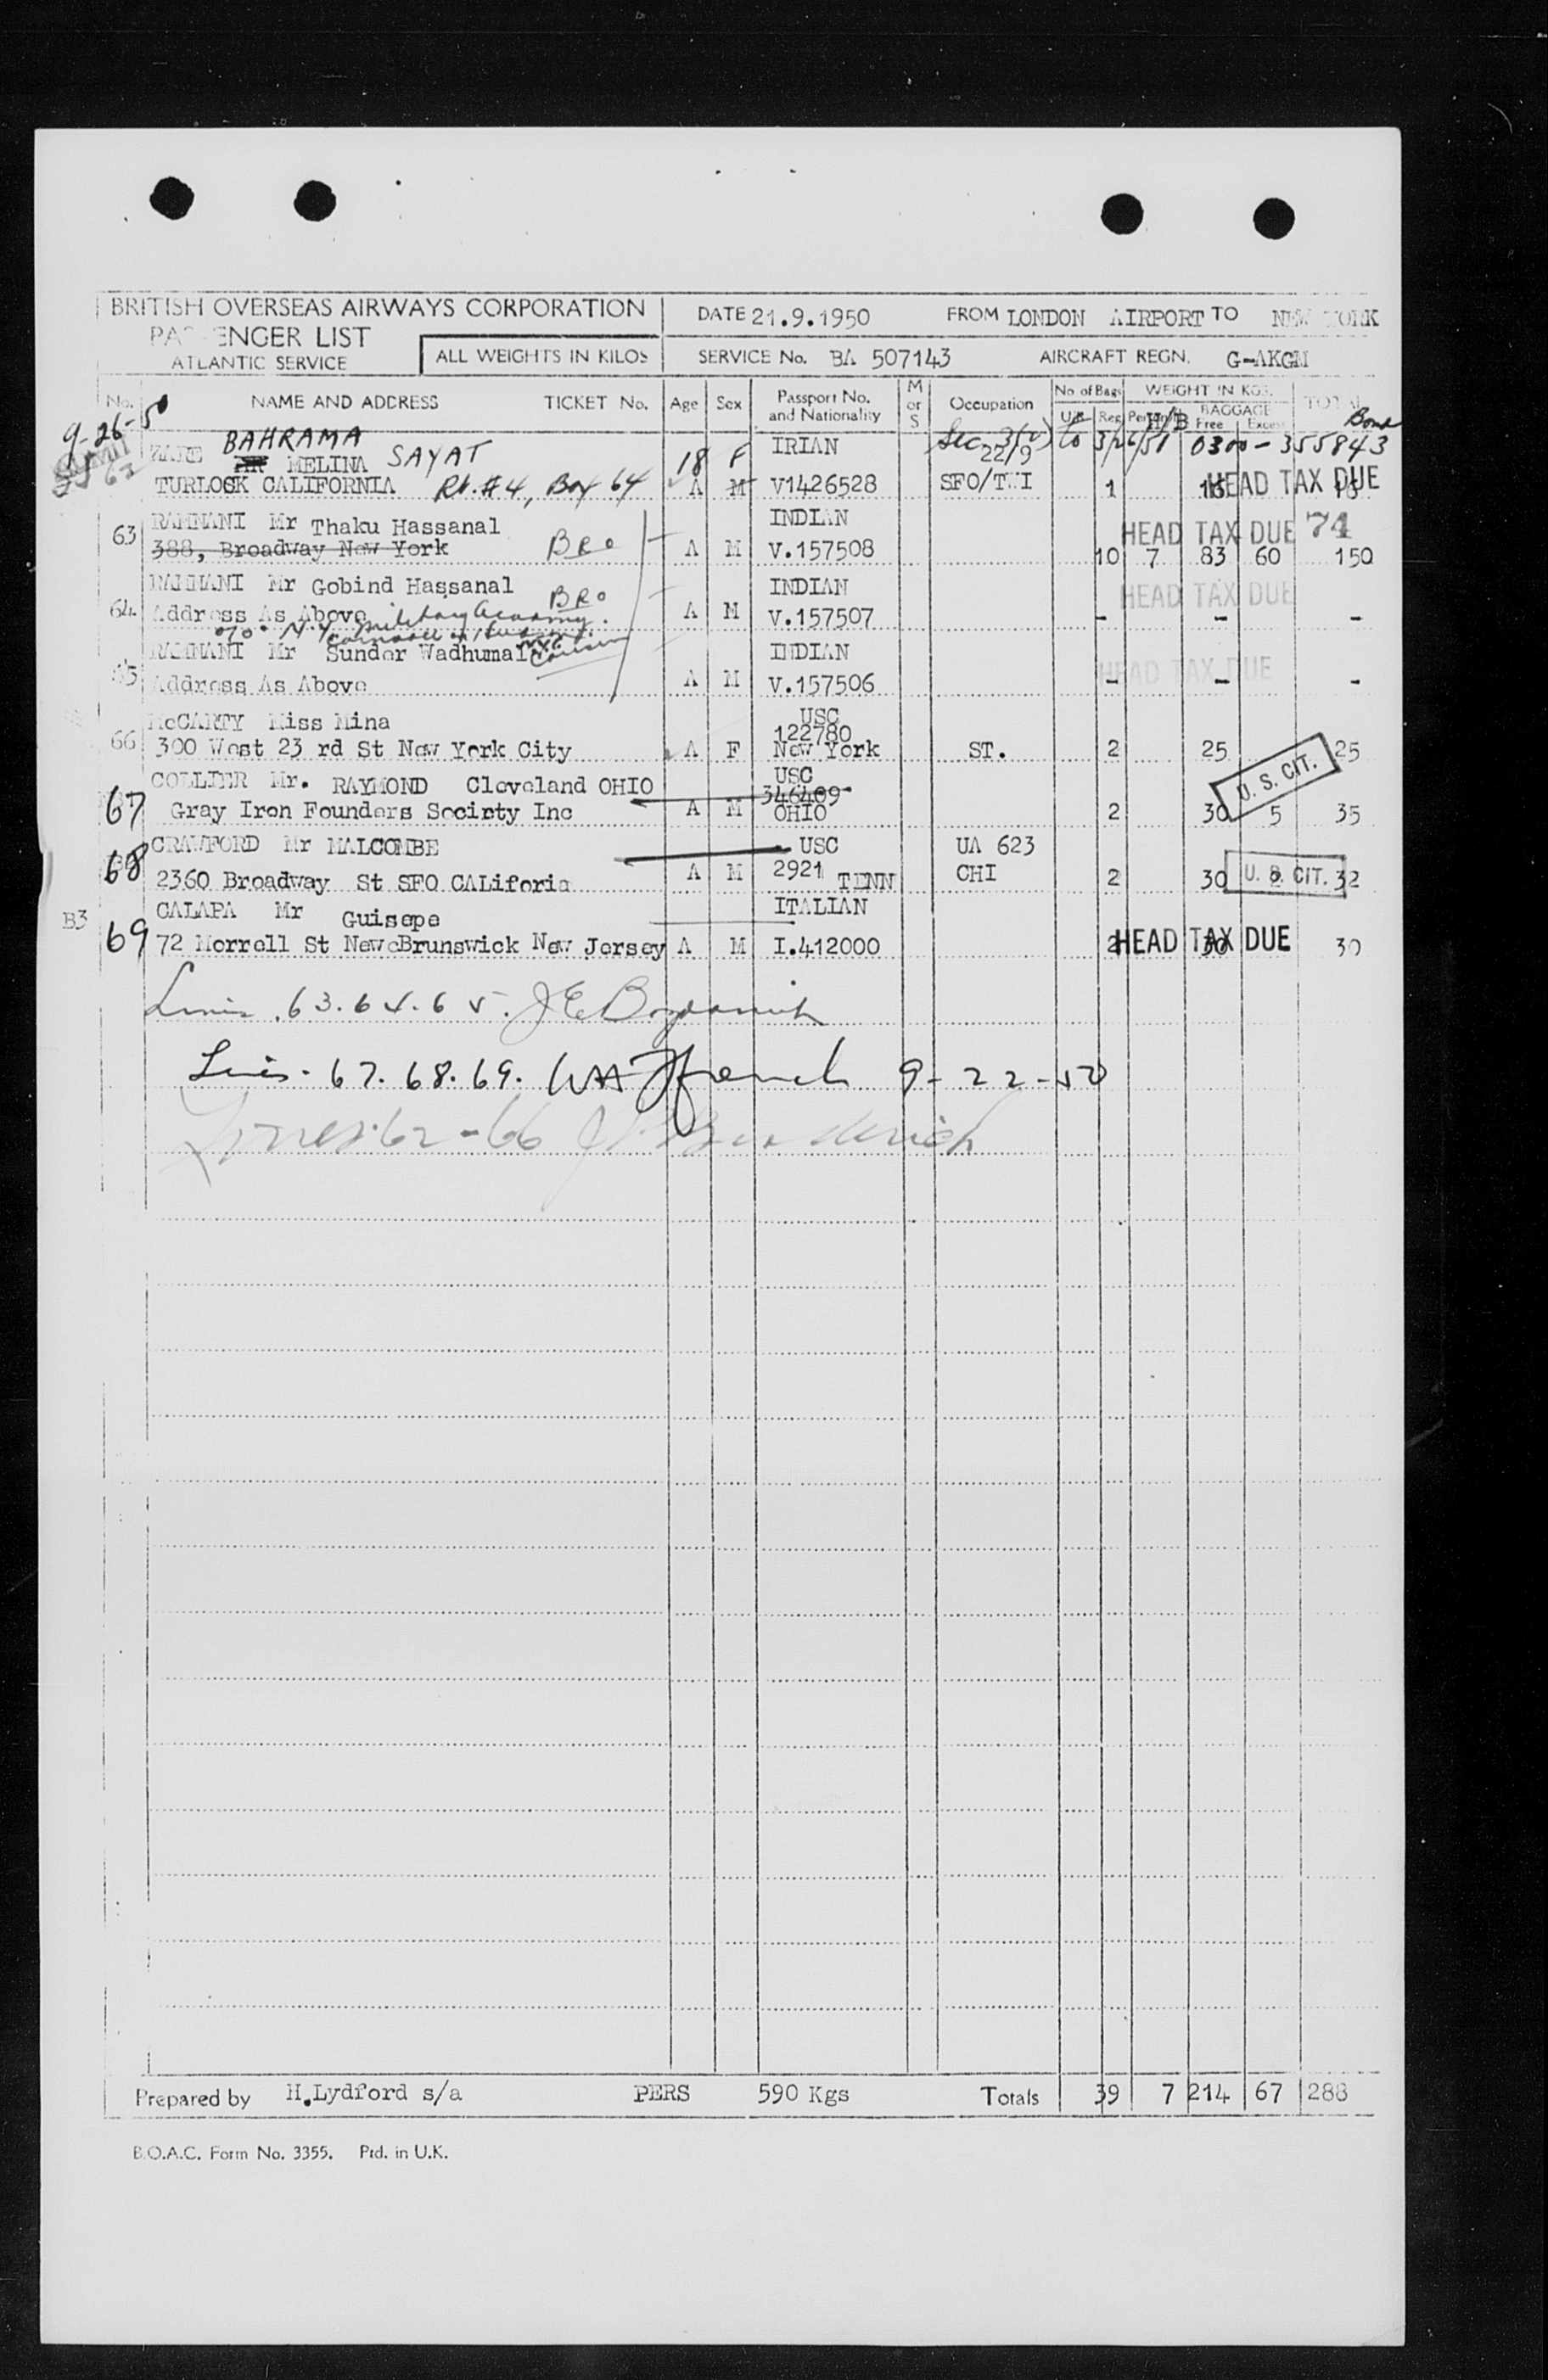 BRITISH OVERSEAS AIRWAYS CORPORATION
PASSENGER LIST
ATLANTIC SERVICE
ALL WEIGHTS IN KILOS
DATE 21.9.1950 FROM LONDON AIRPORT TO NEW YORK
SERVICE No. BA 507143 AIRCRAFT REGN. G-AKGM
No. NAME AND ADDRESS TICKET No. Age Sex Passport No. and Nationality M or S Occupation No. of Bags WEIGHT IN KGS. TOTAL
U/R Reg Personal H/B BAGGAGE Free Excess
9-26-50 BAHRAMA IRIAN Sec 3(2) to 3/26/51 0300-355843 Bond
MELINA SAYAT 18 F 22/9
62 TURLOCK CALIFORNIA Rt. #4, Box 64 A M V1426528 SFO/TWI 1 HEAD TAX DUE
63 RAMNANI Mr Thaku Hassanal INDIAN HEAD TAX DUE 74
388, Broadway New York BRO A M V.157508 10 7 83 60 150
RAMNANI Mr Gobind Hassanal BRO INDIAN HEAD TAX DUE
64 Address As Above A M V.157507 - - -
c/o N.Y. Military Academy.
Cornwall
RAMNANI Mr Sunder Wadhumal Cousin INDIAN HEAD TAX DUE
65 Address As Above A M V.157506 - - -
McCARTY Miss Mina USC
122780
66 300 West 23 rd St New York City A F New York ST. 2 25 25
COLLIER Mr. RAYMOND Cleveland OHIO USC U. S. CIT.
346409
67 Gray Iron Founders Socirty Inc A M OHIO 2 30 5 35
CRAWFORD Mr MALCOMBE USC UA 623
68 2360 Broadway St SFO CALiforia A M 2921 TENN CHI 2 30 2 U. S. CIT. 32
B3 CALAPA Mr Guisepe ITALIAN
69 72 Morrell St NewcBrunswick New Jersey A M I.412000 2 HEAD TAX DUE 30 30
63.64.65.
67.68.69. 9-22-50
Lines 62-66
Prepared by H.Lydford s/a PERS 590 Kgs Totals 39 7 214 67 288
B.O.A.C. Form No. 3355. Ptd. in U.K.